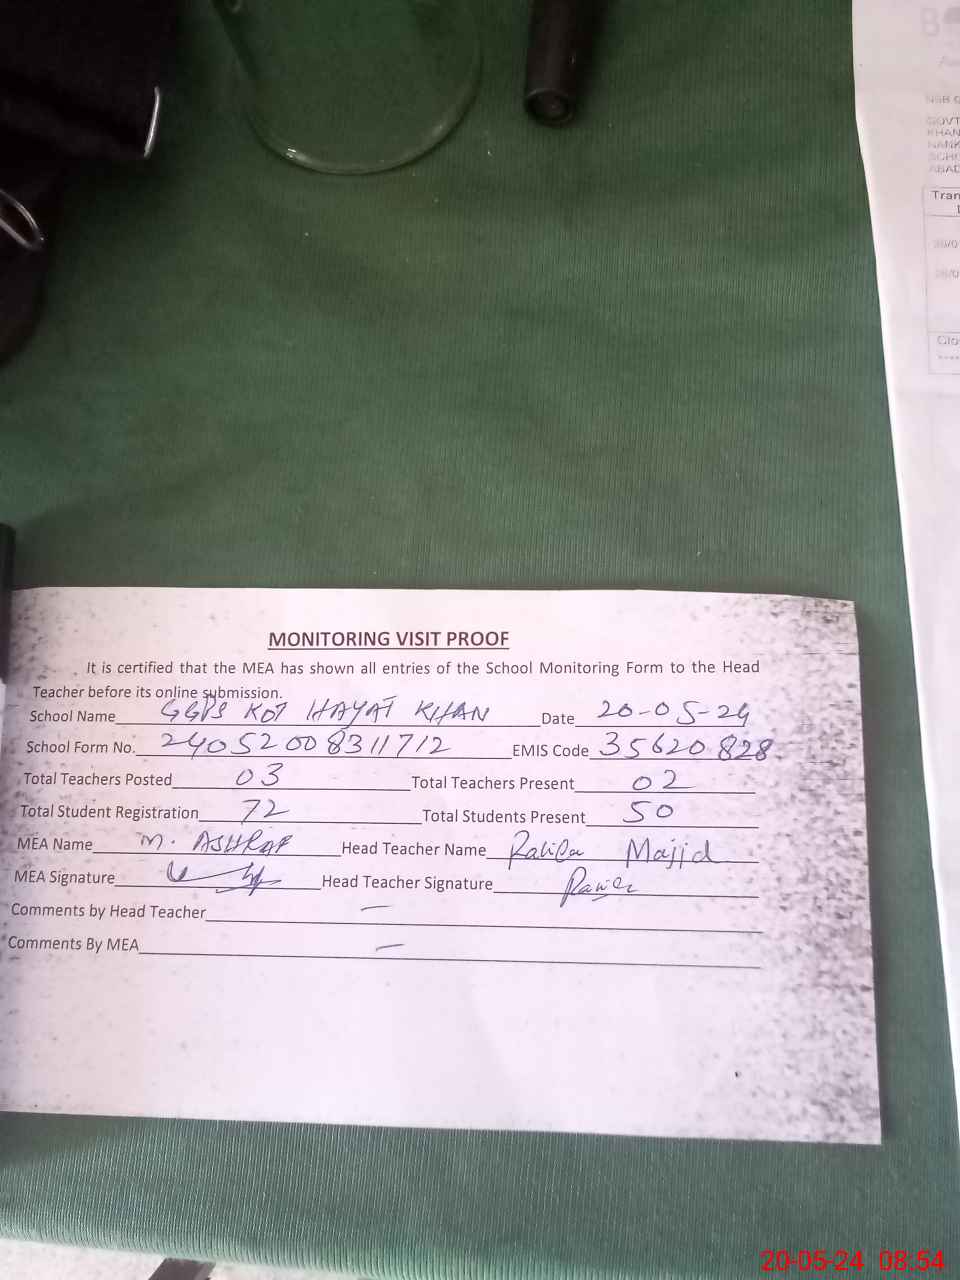 B
NSB
GOVT
KHAN
NANK
SCHO
ABAD
Tran
Clo
MONITORING VISIT PROOF
It is certified that the MEA has shown all entries of the School Monitoring Form to the Head
Teacher before its online submission.
School Name GGPS KOT HAYAT KHAN Date 20-05-24
School Form No. 24052008311712 EMIS Code 35620828
Total Teachers Posted 03 Total Teachers Present 02
Total Student Registration 72 Total Students Present 50
MEA Name M. ASHRAF Head Teacher Name Majid
MEA Signature Head Teacher Signature
Comments by Head Teacher —
Comments By MEA —
20-05-24 08:54